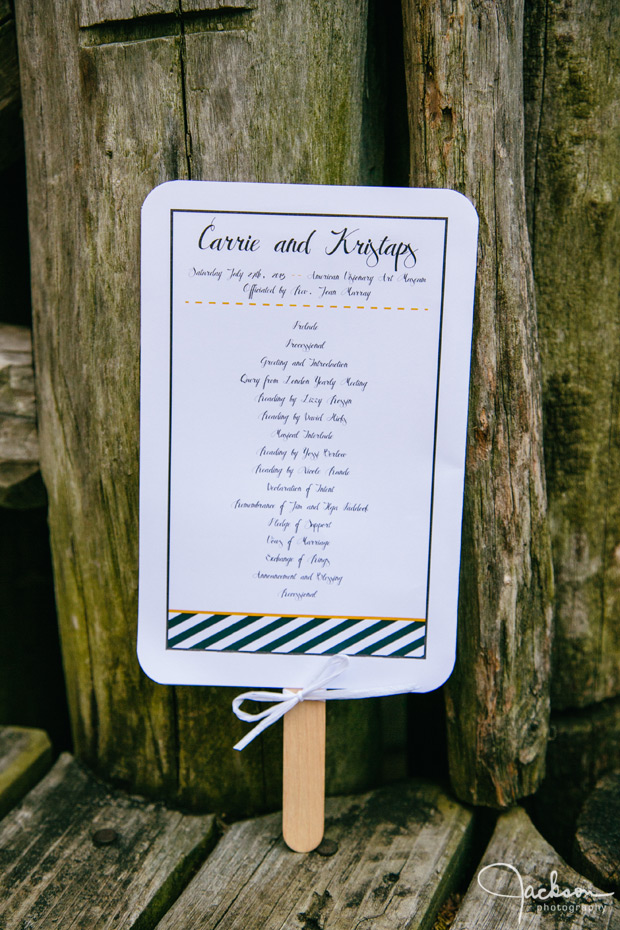 Carrie and Kristaps
Saturday July 27th, 2013 -- American Visionary Art Museum
Officiated by Rev. Joan Murray
Prelude
Processional
Greeting and Introduction
Query from London Yearly Meeting
Reading by Lizzy
Reading by David Hicks
Musical Interlude
Reading by
Reading by Nicole
Declaration of Intent
Remembrance of Jan and
Pledge of Support
Vows of Marriage
Exchange of Rings
Announcement and Blessing
Recessional
Jackson
photography